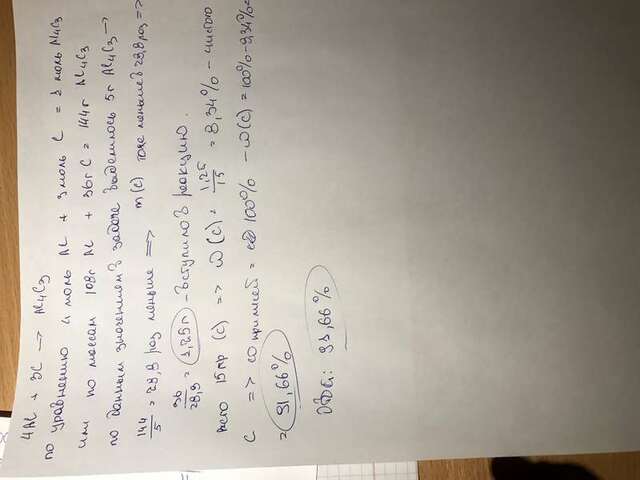 4Al + 3C → Al4C3
по уравнению 4 моль Al + 3 моль C = 1 моль Al4C3
или по массам 108г Al + 36г C = 144г Al4C3
по данным значениям в задаче выделилось 5г Al4C3 →
144/5 = 28,8 раз меньше => m(C) тоже меньше в 28,8 раз =>
36/28,8 = 1,25г - вступило в реакцию.
всего 15гр (C) => ω(C) = 1,25/15 = 8,34% - чистого
C => ω примесей = 100% - ω(C) = 100% - 8,34% =
= 91,66%
Ответ: 91,66%